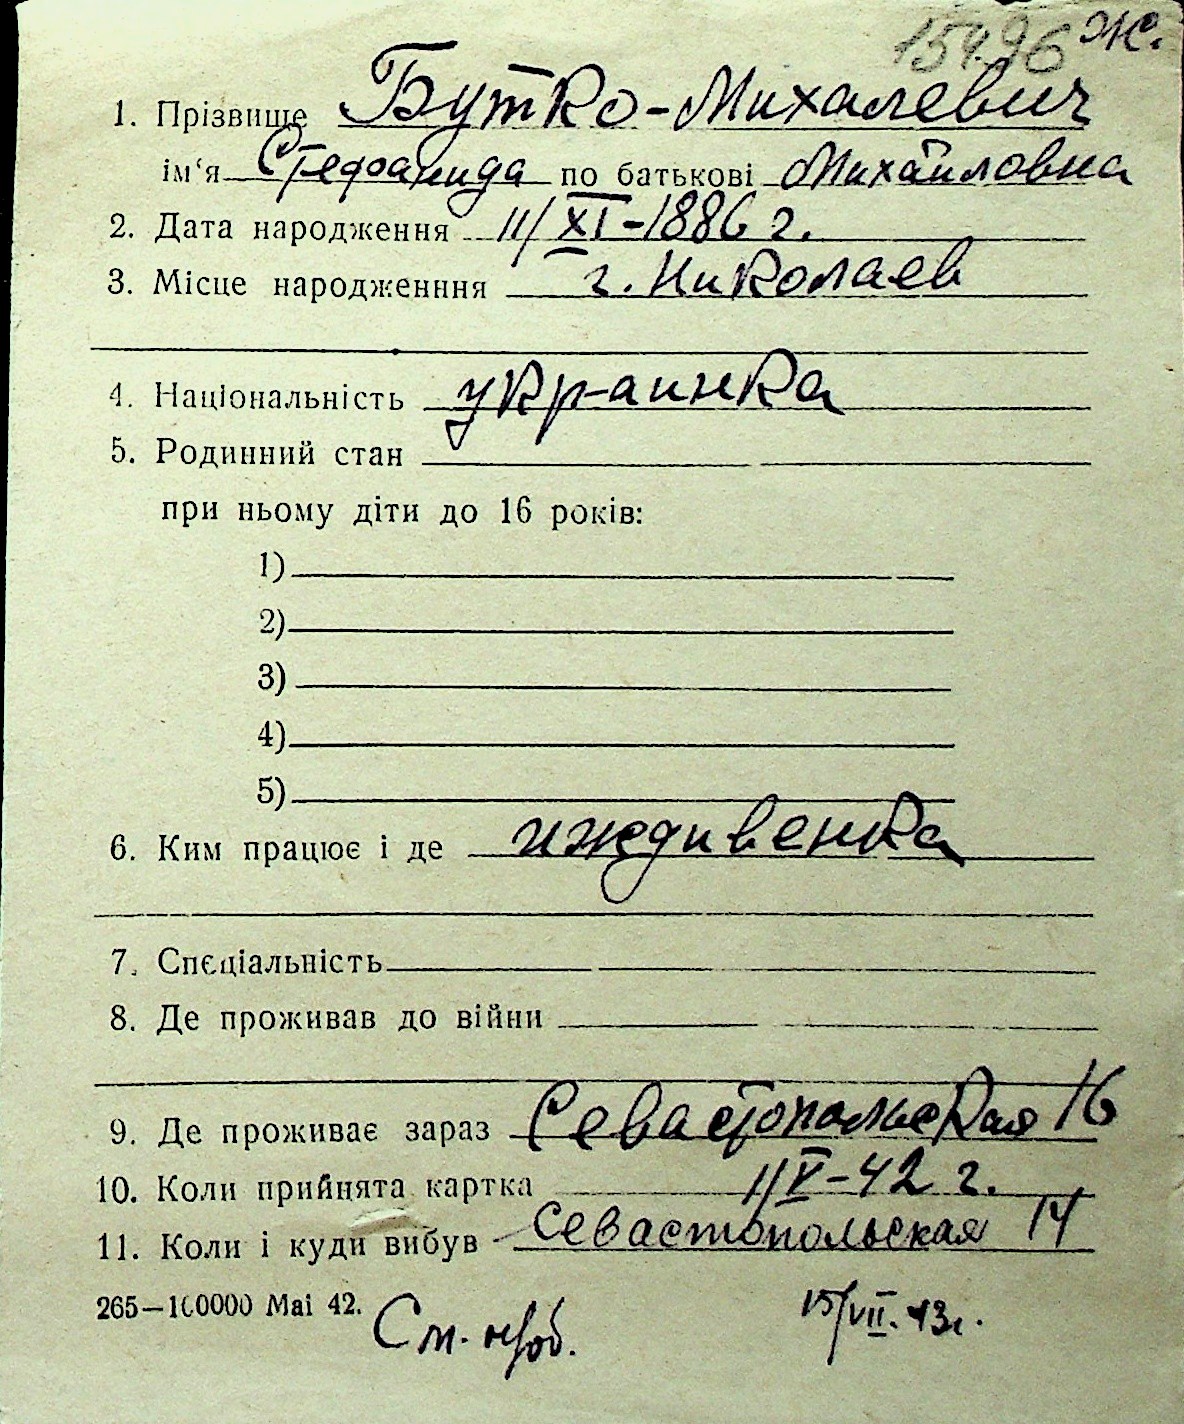 15496 Ж.
1. Прізвище Бутко-Михалевич
ім'я Стефанида по батькові Михайловна
2. Дата народження 11/XI-1886 г.
3. Місце народженння г. Николаев
4. Національність украинка
5. Родинний стан
при ньому діти до 16 років:
1)
2)
3)
4)
5)
6. Ким працює і де иждивенка
7. Спеціальність
8. Де проживав до війни
9. Де проживає зараз Севастопольская 16
10. Коли прийнята картка 1/V-42 г.
11. Коли і куди вибув Севастопольская 14
265—100000 Mai 42. См. н/об. 15/VII.43г.